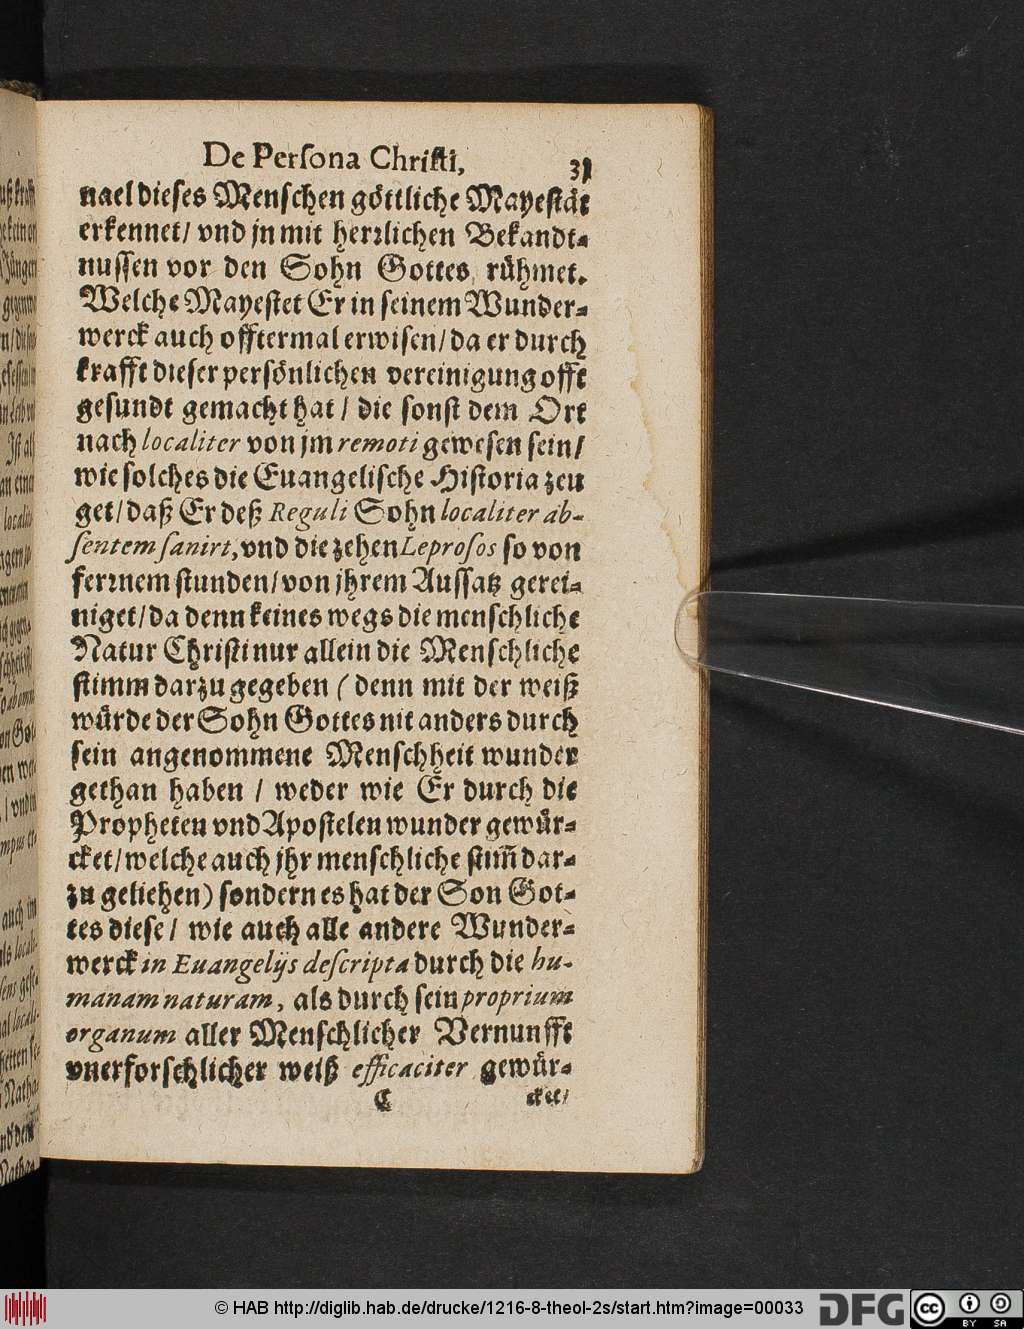 De Perſona Chriſti,
31
nael dieſes Menſchen göttliche Mayeſtät
erkennet/ vnd jn mit herꝛlichen Bekandt-
nuſſen vor den Sohn Gottes rühmet.
Welche Mayeſtet Er in ſeinem Wunder-
werck auch offtermal erwiſen/ da er durch
krafft dieſer perſönlichen vereinigung offt
geſundt gemacht hat / die ſonſt dem Ort
nach localiter von jm remoti geweſen ſein/
wie ſolches die Euangeliſche Hiſtoria zeu
get/ daß Er deß Reguli Sohn localiter ab-
ſentem ſanirt, vnd die zehen Leproſos ſo von
ferꝛnem ſtunden/ von jhrem Auſſatz gerei-
niget/ da denn keines wegs die menſchliche
Natur Chriſti nur allein die Menſchliche
ſtimm darzu gegeben ( denn mit der weiß
würde der Sohn Gottes nit anders durch
ſein angenommene Menſchheit wunder
gethan haben / weder wie Er durch die
Propheten vnd Apoſtelen wunder gewür-
cket/ welche auch jhr menſchliche ſtim̃ dar-
zu geliehen) ſondern es hat der Son Got-
tes dieſe / wie auch alle andere Wunder-
werck in Euangelijs deſcripta durch die hu-
manam naturam, als durch ſein proprium
organum aller Menſchlicher Vernunfft
vnerforſchlicher weiß efficaciter gewür-
C
cket/
© HAB http://diglib.hab.de/drucke/1216-8-theol-2s/start.htm?image=00033
DFG
cc
BY SA